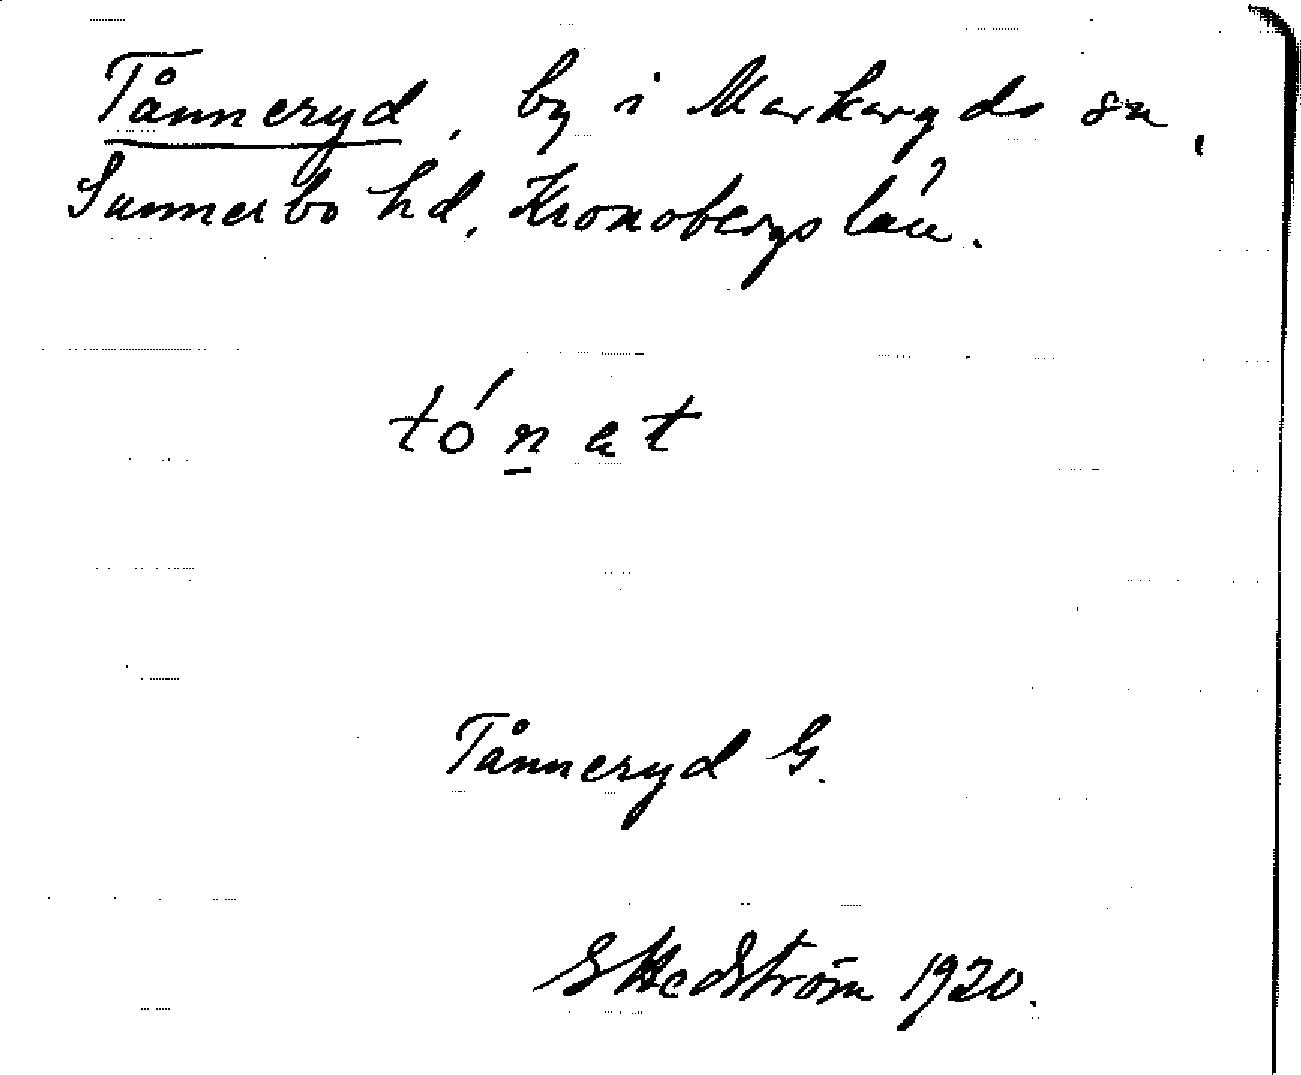 Tånneryd, by i Markaryds sn,
Sunnerbo hd, Kronobergs län.
tónat
Tånneryd G.
G Hedström 1920.